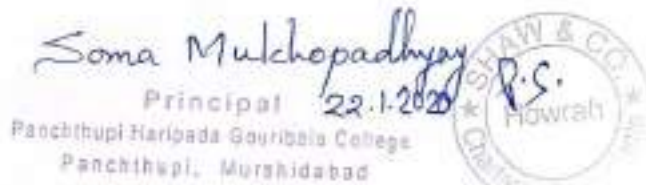 Soma Mukhopadhyay
Principal 22.1.2020
Panchthupi Haripada Gouribala College
Panchthupi, Murshidabad
SHAW & CO.
P.S.
Howrah